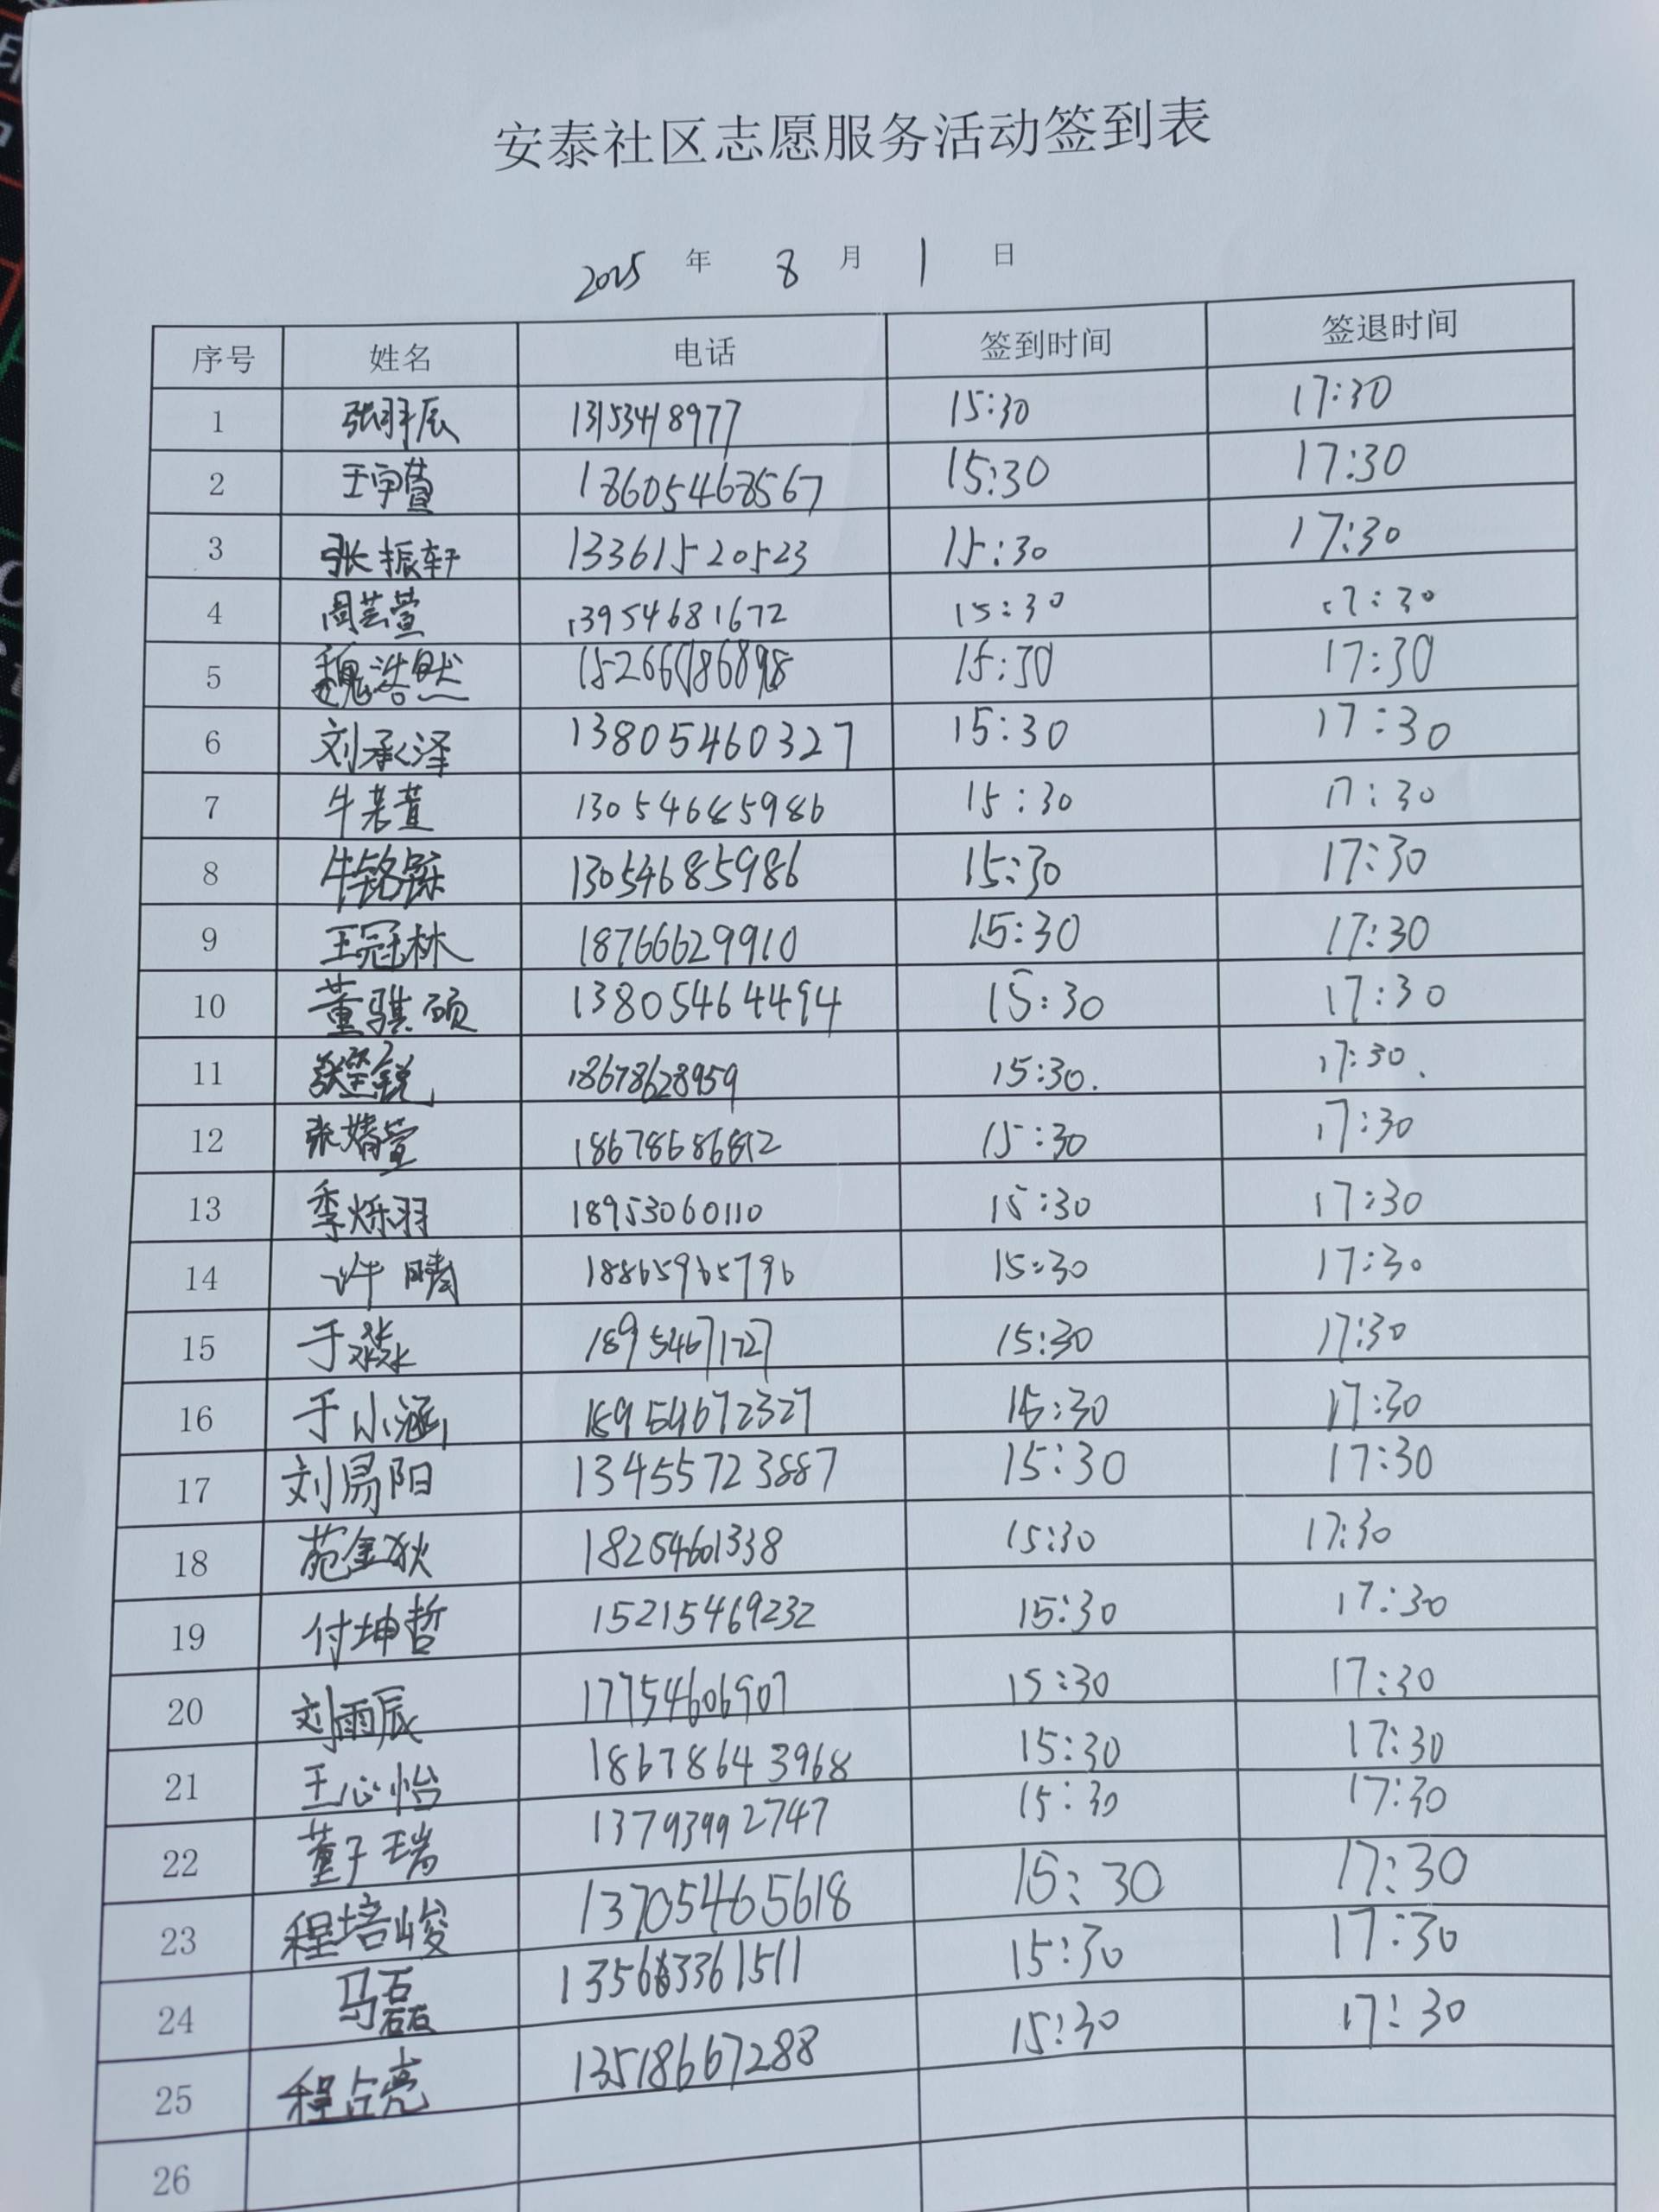 安泰社区志愿服务活动签到表
2025 年 8 月 1 日
序号 姓名 电话 签到时间 签退时间
1 张羽辰 13153418977 15:30 17:30
2 王宇萱 18605468567 15:30 17:30
3 张振轩 13361520523 15:30 17:30
4 周芸萱 13954681672 15:30 17:30
5 魏浩然 15:30 17:30
6 刘承泽 13805460327 15:30 17:30
7 牛若萱 13054685986 15:30 17:30
8 13054685986 15:30 17:30
9 王冠林 18766629910 15:30 17:30
10 董骐硕 13805464494 15:30 17:30
11 18678628959 15:30. 17:30.
12 张婧萱 15:30 17:30
13 李烁羽 18953060110 15:30 17:30
14 许晴 18865965796 15:30 17:30
15 于淼 18954671727 15:30 17:30
16 于小涵 18954672327 15:30 17:30
17 刘易阳 13455723887 15:30 17:30
18 苑金狄 18254601338 15:30 17:30
19 付坤哲 15215469232 15:30 17:30
20 刘雨辰 17754606907 15:30 17:30
21 王心怡 18678643968 15:30 17:30
22 董子瑞 13793992747 15:30 17:30
23 程培峻 13705465618 15:30 17:30
24 马磊 15:30 17:30
25 程占亮 13518667288 15:30 17:30
26